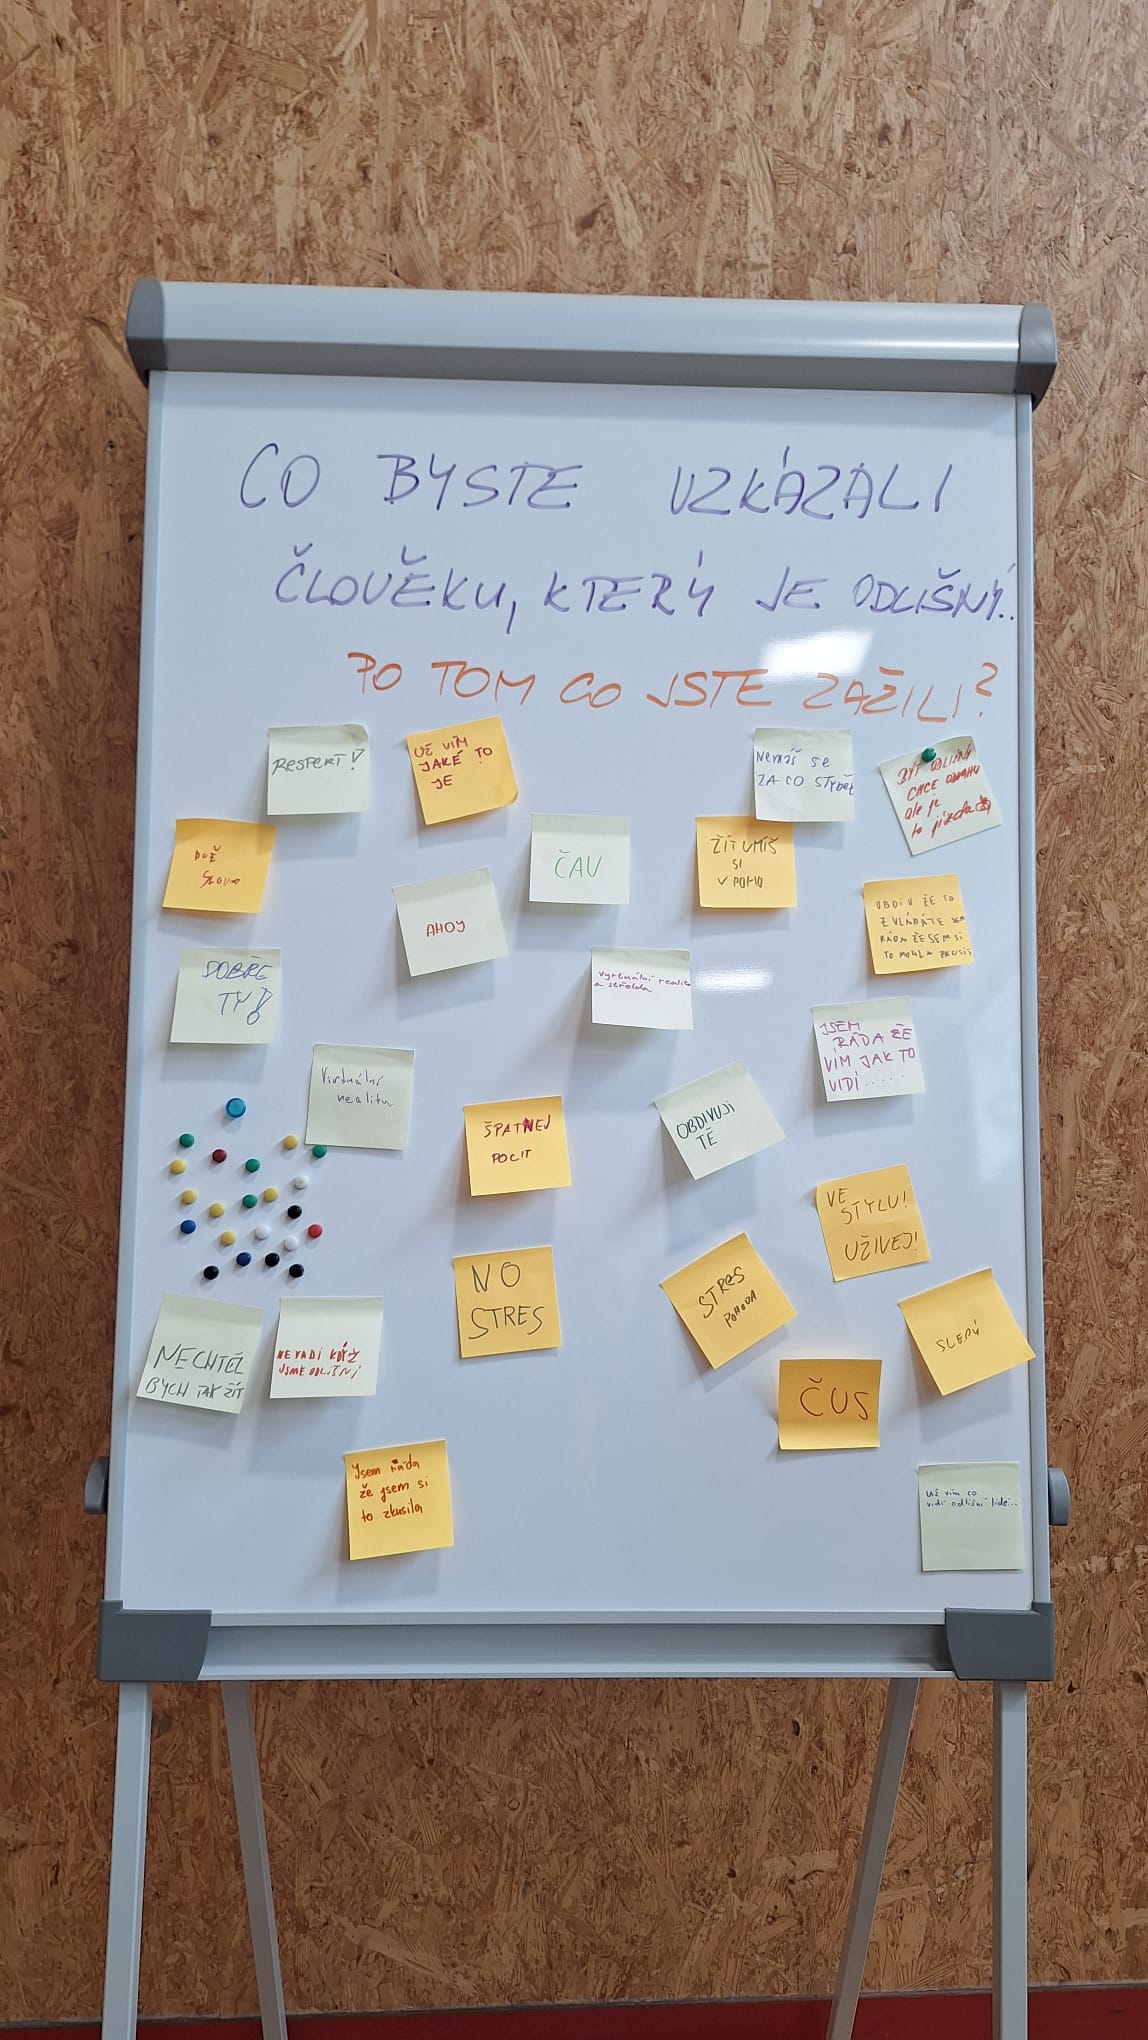 CO BYSTE UZKÁZALI
ČLOVĚKU, KTERÝ JE ODLIŠNÝ..
PO TOM CO JSTE ZAŽILI?
RESPEKT!
UŽ VÍM
JAKÉ TO
JE
Nemáš se
ZA CO STYDĚT
BÝT ODLIŠNÝ
CHCE ODVAHU
ale je
to jízda
SLOVO
ČAV
ŽÍT UMÍŠ
SI
V POHO
AHOJ
OBDIV ŽE TO
ZVLÁDÁTE JSEM
RÁDA ŽE SEM SI
TO MOHLA ZKUSIT
DOBŘE
TY!
a střelda
JSEM
RÁDA ŽE
VÍM JAK TO
VIDÍ.....
Virtuální
realitu
ŠPATNEJ
POCIT
OBDIVUJI
TĚ
VE
STYLU!
UŽIVEJ!
NO
STRES
STRES
POHODA
SLEPÝ
NECHTĚL
BYCH TAK ŽÍT
NEVADÍ KDYŽ
JSME ODLIŠNÍ
ČUS
Jsem ráda
že jsem si
to zkusila
Už vím co
vidí odlišní lidé..